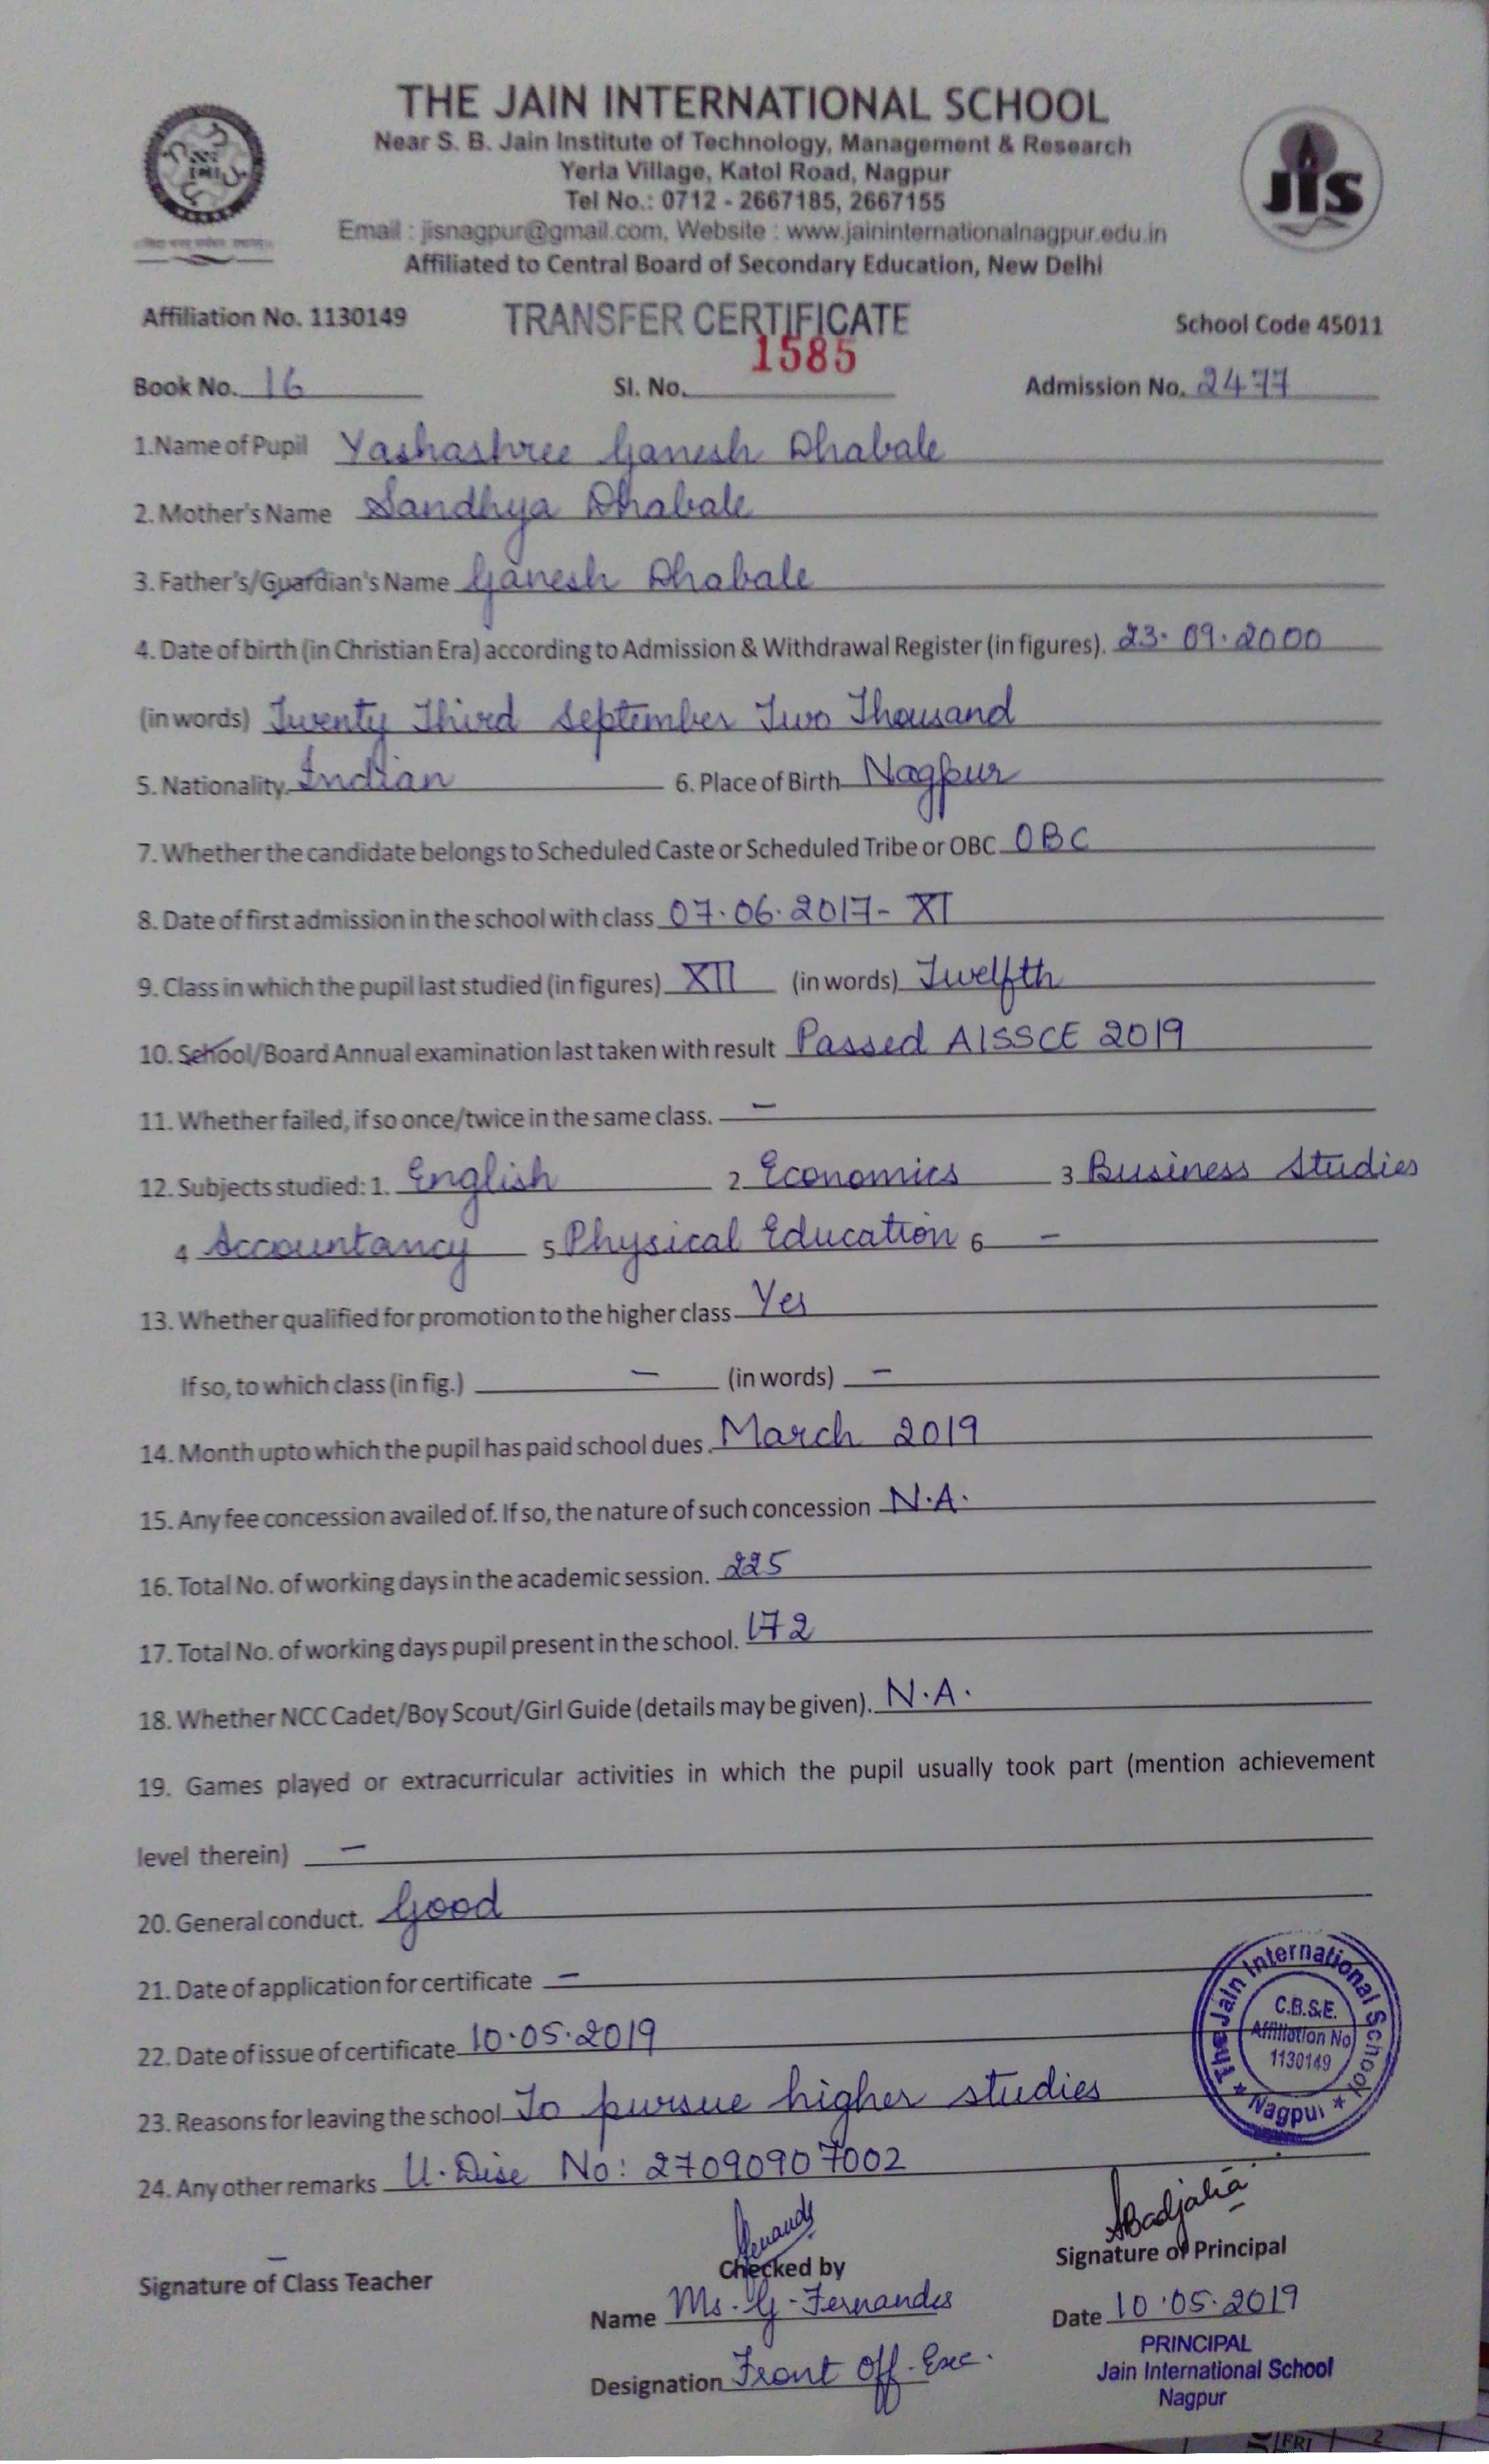 THE JAIN INTERNATIONAL SCHOOL
Near S. B. Jain Institute of Technology, Management & Research
Yerla Village, Katol Road, Nagpur
Tel No.: 0712 - 2667185, 2667155
Email : jisnagpur@gmail.com, Website : www.jaininternationalnagpur.edu.in
Affiliated to Central Board of Secondary Education, New Delhi
JIS
Affiliation No. 1130149 TRANSFER CERTIFICATE School Code 45011
Book No. 16 Sl. No. 1585 Admission No. 2477
1.Name of Pupil Yashashree Ganesh Dhabale
2. Mother's Name Sandhya Dhabale
3. Father's/Guardian's Name Ganesh Dhabale
4. Date of birth (in Christian Era) according to Admission & Withdrawal Register (in figures). 23.09.2000
(in words) Twenty Third September Two Thousand
5. Nationality. Indian 6. Place of Birth Nagpur
7. Whether the candidate belongs to Scheduled Caste or Scheduled Tribe or OBC OBC
8. Date of first admission in the school with class 07.06.2017- XI
9. Class in which the pupil last studied (in figures) XII (in words) Twelfth
10. School/Board Annual examination last taken with result Passed AISSCE 2019
11. Whether failed, if so once/twice in the same class. –
12. Subjects studied: 1. English 2 Economics 3 Business Studies
4 Accountancy 5 Physical Education 6 –
13. Whether qualified for promotion to the higher class Yes
If so, to which class (in fig.) – (in words) –
14. Month upto which the pupil has paid school dues. March 2019
15. Any fee concession availed of. If so, the nature of such concession N.A.
16. Total No. of working days in the academic session. 225
17. Total No. of working days pupil present in the school. 172
18. Whether NCC Cadet/Boy Scout/Girl Guide (details may be given). N.A.
19. Games played or extracurricular activities in which the pupil usually took part (mention achievement
level therein) –
20. General conduct. Good
21. Date of application for certificate –
22. Date of issue of certificate 10.05.2019
23. Reasons for leaving the school To pursue higher studies
24. Any other remarks U.Dise No: 27090907002
The Jain International School
C.B.S.E.
Affiliation No
1130149
★ Nagpur ★
–
Signature of Class Teacher
Checked by
Signature of Principal
Name Ms. G. Fernandes
Date 10.05.2019
Designation Front Off. Exec.
PRINCIPAL
Jain International School
Nagpur
FRI 2